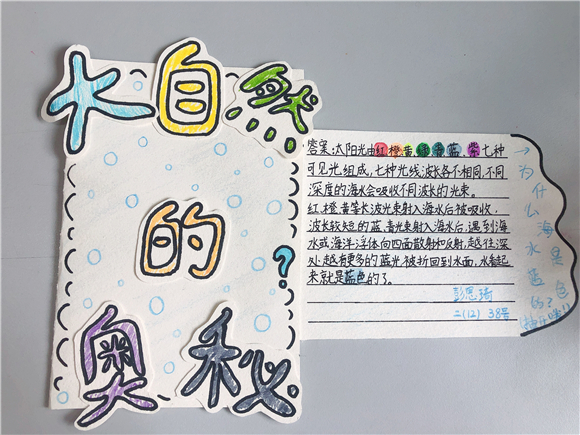 大自然
的
?
奥秘
答案:太阳光由红、橙、黄、绿、青、蓝、紫七种
可见光组成,七种光线波长各不相同,不同
深度的海水会吸收不同波长的光束。
红、橙、黄等长波光束射入海水后被吸收,
波长较短的蓝、青光束射入海水后,遇到海
水或海洋浮体向四面散射和反射,越往深
处越有更多的蓝光被折回到水面,水看起
来就是蓝色的了。
二(12) 38号
→为什么海水是蓝色的?